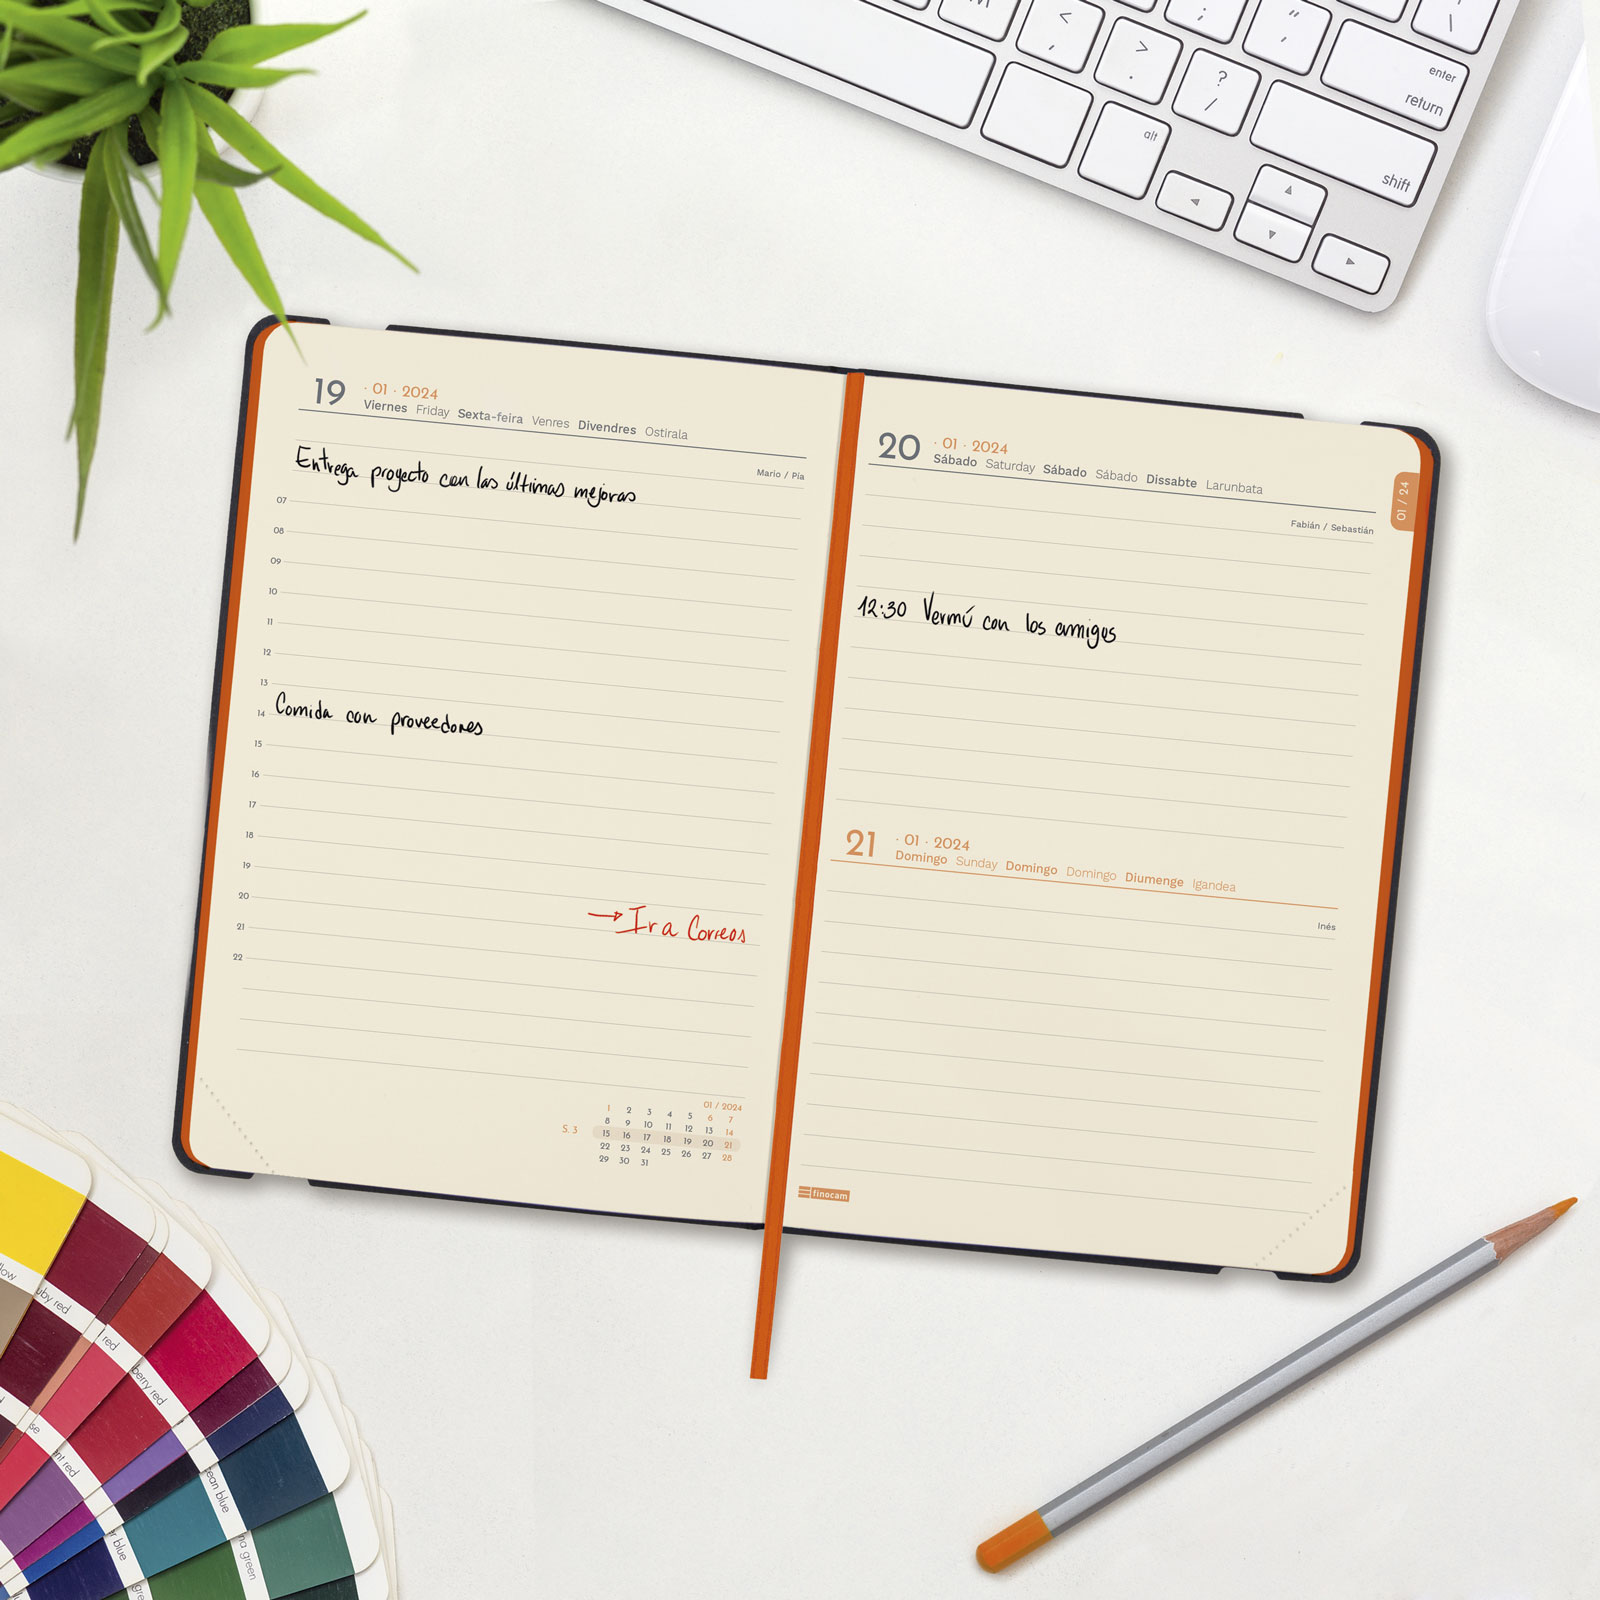 enter
return
alt
shift
19 · 01 · 2024
Viernes Friday Sexta-feira Venres Divendres Ostirala
Mario / Pía
Entrega proyecto con las últimas mejoras
07
08
09
10
11
12
13
14 Comida con proveedores
15
16
17
18
19
20
→ Ir a Correos
21
22
01 / 2024
1 2 3 4 5 6 7
8 9 10 11 12 13 14
S. 3 15 16 17 18 19 20 21
22 23 24 25 26 27 28
29 30 31
20 · 01 · 2024
Sábado Saturday Sábado Sábado Dissabte Larunbata
01 / 24
Fabián / Sebastián
12:30 Vermú con los amigos
21 · 01 · 2024
Domingo Sunday Domingo Domingo Diumenge Igandea
Inés
finocam
red
red
red
blue
blue
green